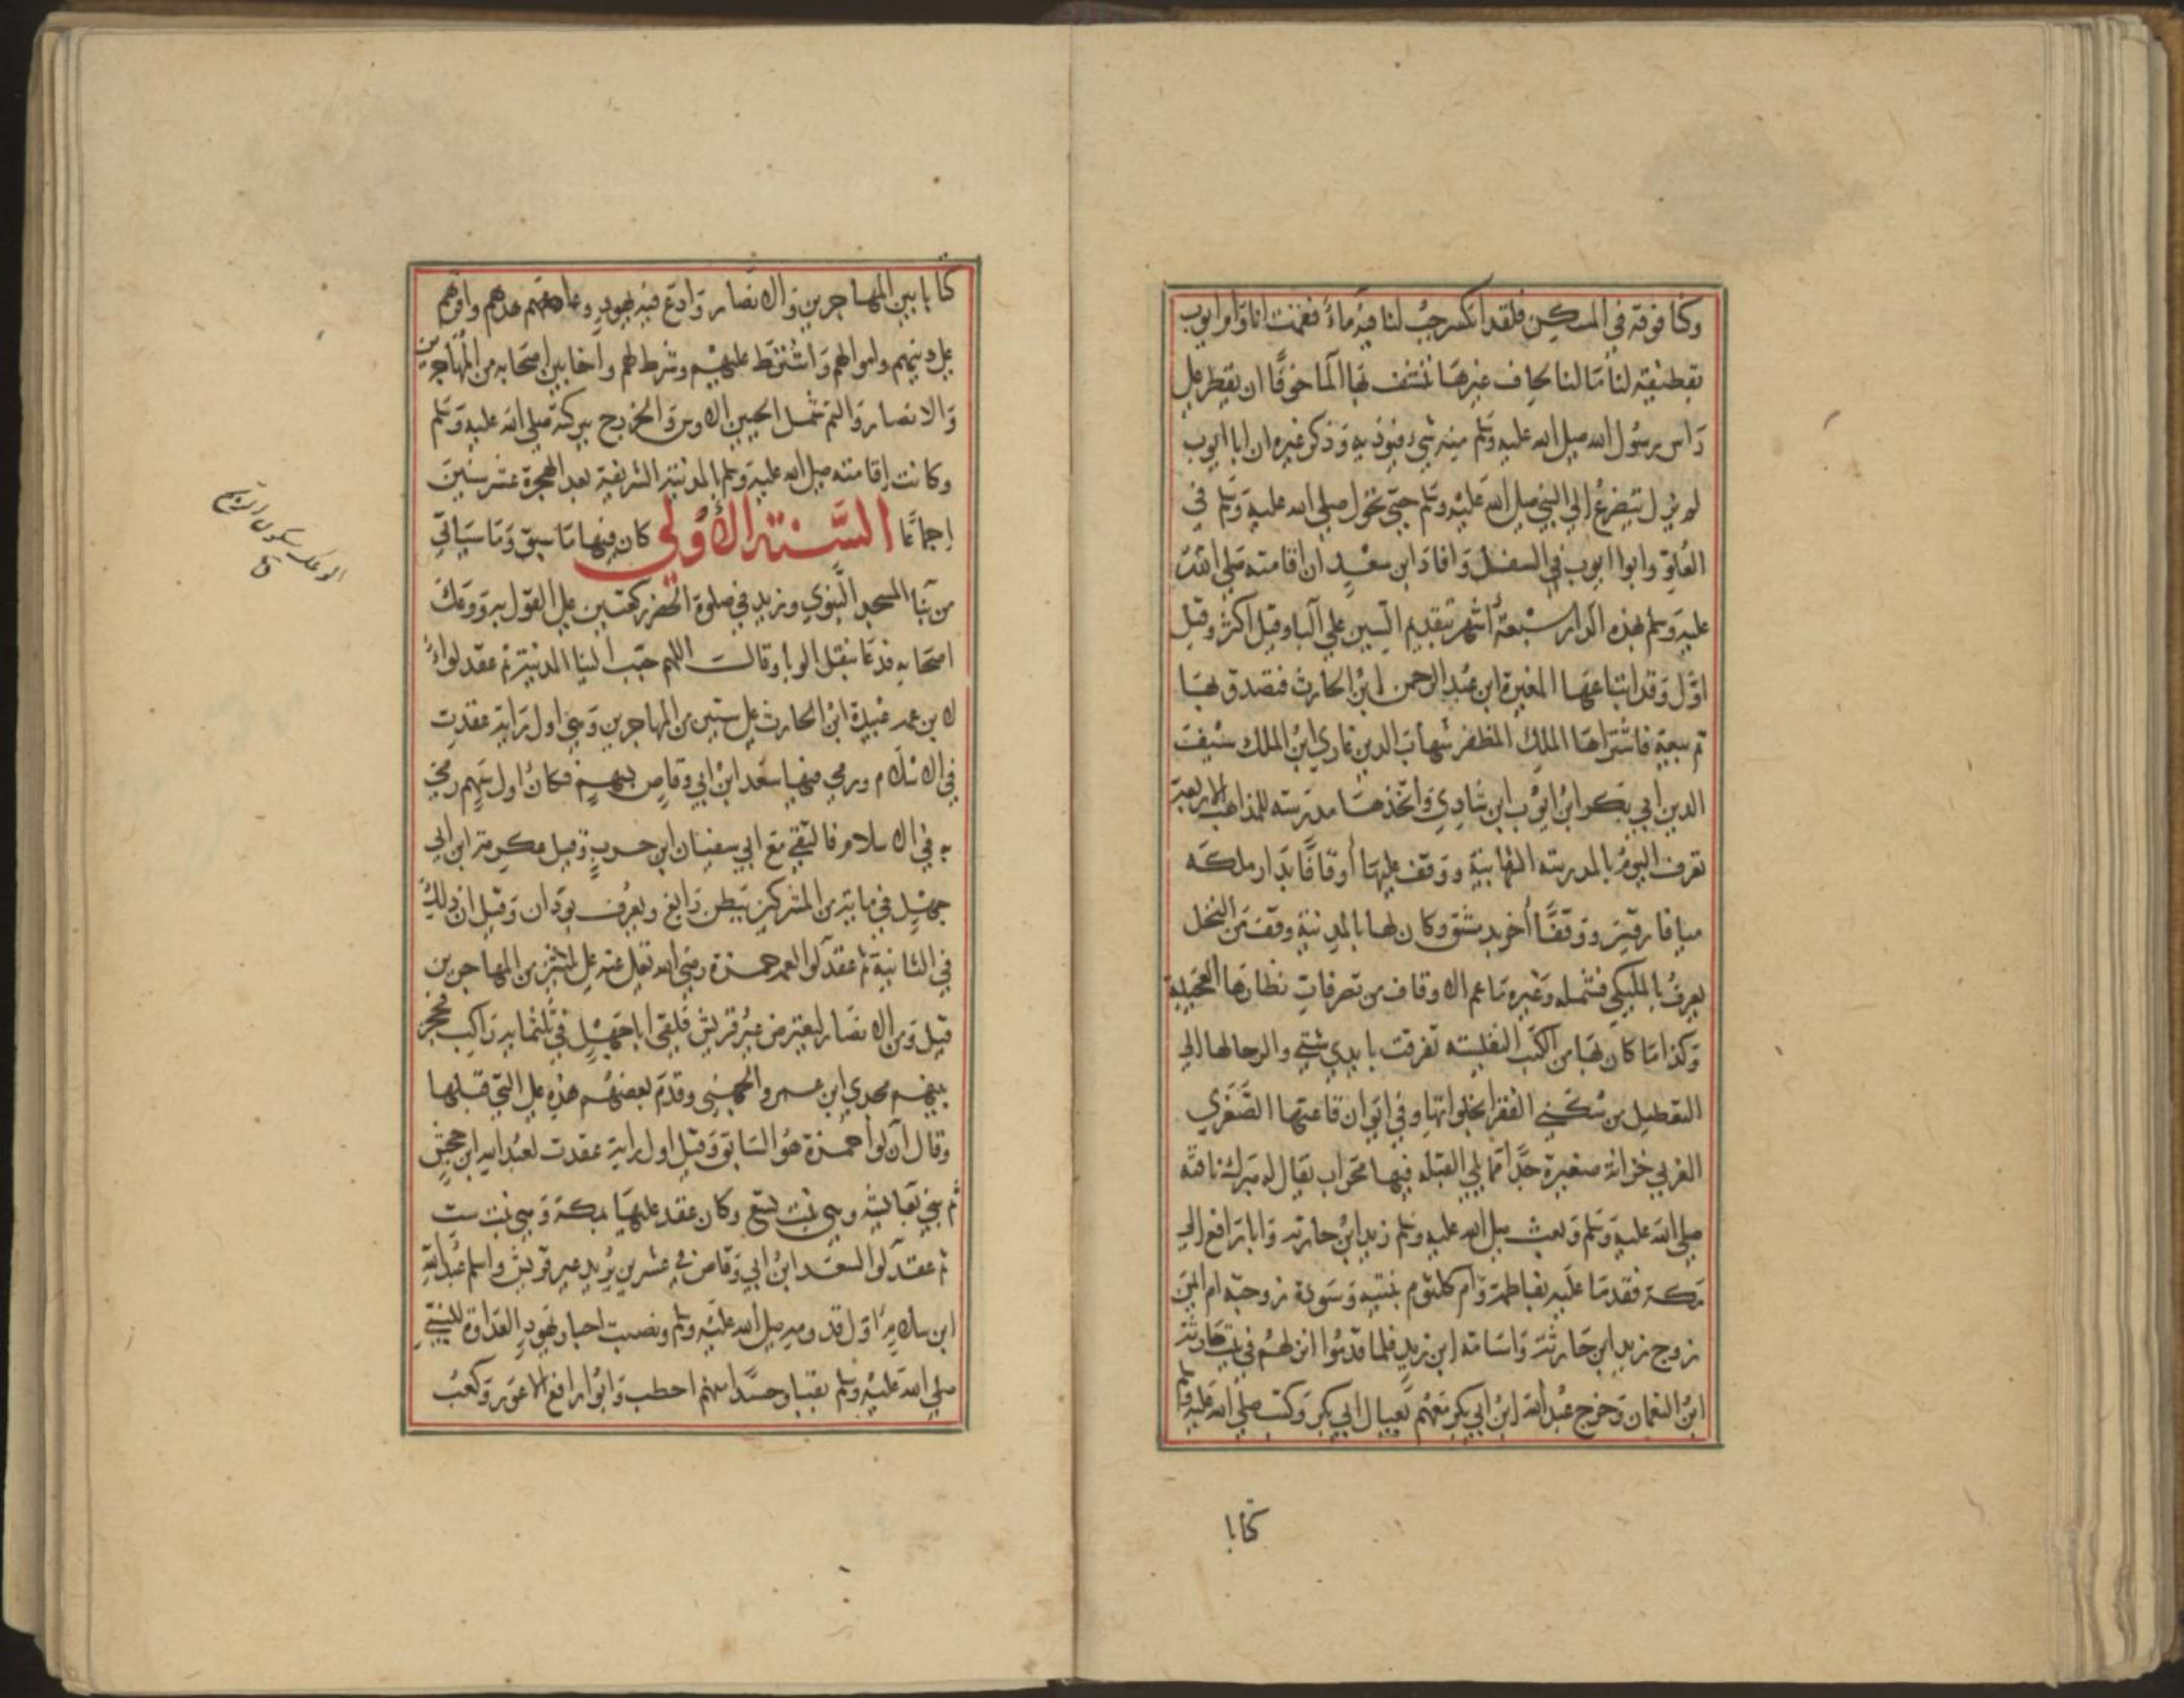 وكنا فوقه في المسكن فلقد انكسر حب لنا فيه ماء فقمت انا وام ايوب
بقطيفة لنا ما لنا لحاف غيرها ننشف بها الما خوفا ان يقطر على
راس رسول الله صلى الله عليه وسلم منه شي فيوذيه وذكر غيره ان ابا ايوب
لم يزل يتضرع الى النبي صلى الله عليه وسلم حتى تحول صلى الله عليه وسلم في
العلو وابوا ايوب في السفل وافاد ابن سعد ان اقامته صلى الله
عليه وسلم بهذه الدار سبعة اشهر بتقديم السين على البا وقيل اكثر وقيل
اقل وقد ابتاعها المغيرة ابن عبد الرحمن ابن الحارث فتصدق بها
ثم بيعت فاشتراها الملك المظفر شهاب الدين غازي ابن الملك سيف
الدين ابي بكر ابن ايوب ابن شادي واتخذها مدرسته للمذاهب الاربعة
تعرف اليوم بالمدرسته الشهابية ووقف عليها أوقافا بدار ملكه
ميافارقين ووقفا أخر بدمشق وكان لها بالمدينة وقف من النخل
يعرف بالمليكي فشمله وغيره ما عم الاوقاف من تصرفات نظارها العجيبة
وكذا ما كان بها من الكتب النفيسه تفرقت بايدي شتى والرحالها الى
التعطيل من سكنى الفقرا بخلواتها وفي ايوان قاعتها الصغرى
الغربي خزانة صغيرة جدا مما يلي القبله فيها محراب يقال له مبرك ناقته
صلى الله عليه وسلم وبعث صلى الله عليه وسلم زيد ابن حارثه وابا رافع الى
مكة فقدما عليه بفاطمة وام كلثوم بنتيه وسودة زوجته ام ايمن
زوج زيد ابن حارثة واسامة ابن زيد فلما قدموا انزلهم في بيت حارثة
ابن النعمان وخرج عبد الله ابن ابي بكر معهم بعيال ابي بكر وكتب صلى الله عليه وسلم
كتابا
كتابا بين المهاجرين والانصار وادع فيه يهود وعاهدهم واقرهم
على دينهم واموالهم واشترط عليهم وشرط لهم وأخا بين اصحابه من المهاجرين
والانصار والتم شمل الحيين الاوس والخزرج ببركته صلى الله عليه وسلم
وكانت إقامته صلى الله عليه وسلم بالمدينة الشريفة بعد الهجرة عشر سنين
إجماعا السنة الأولى كان فيها ما سبق وما سياتي
من بنا المسجد النبوي وزيد في صلوة الحضر ركعتين على القول به ووعك
اصحابه فدعا بنقل الوبا وقال اللهم حبب الينا المدينة ثم عقد لواء
لابن عمه عبيدة ابن الحارث على ستين من المهاجرين وهي اول راية عقدت
في الاسلام ورمى فيها سعد ابن ابي وقاص بسهم فكان اول سهم رمي
به في الاسلام فالتقى مع ابي سفيان ابن حرب وقيل عكرمة ابن ابي
جهل في مايتين من المشركين ببطن رابغ ويعرف بودان وقيل ان ذلك
في الثانية ثم عقد لوا لعمه حمزة رضي الله تعالى عنه على ثلثين من المهاجرين
قيل ومن الانصار ليعترض عير قريش فلقى ابا جهل في ثلثماية راكب فحجز
بينهم مجدي ابن عمرو الجهني وقدم بعضهم هذه على التي قبلها
وقال ان لوا حمزة هو السابق وقيل اول راية عقدت لعبد الله ابن جحش
ثم بنى بعايشة وهي بنت تسع وكان عقد عليها بمكة وهي بنت ست
ثم عقد لوا لسعد ابن ابي وقاص في عشرين يريد عير قريش واسلم عبد الله
ابن سلام اول قدومه صلى الله عليه وسلم ونصبت احبار يهود العداوة للنبي
صلى الله عليه وسلم بغيا وحسدا منهم احطب وابوا رافع الاعور وكعب
الوعك بسكون